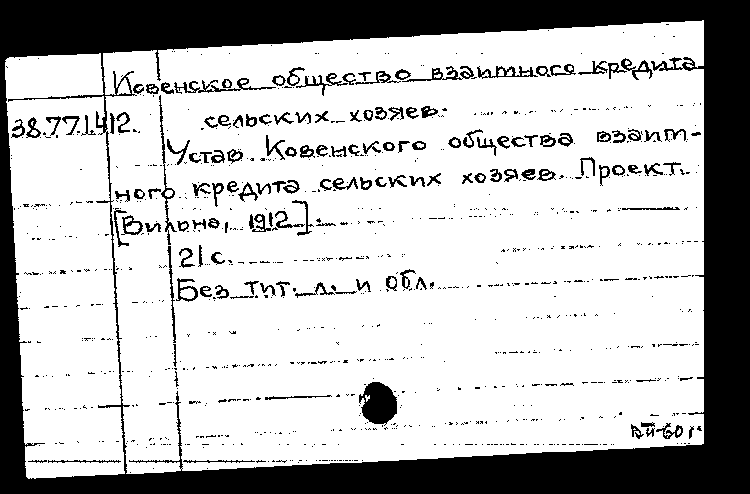 Ковенское общество взаимного кредита
38.77.1.412. сельских хозяев.
Устав Ковенского общества взаим-
ного кредита сельских хозяев. Проект.
[Вильна, 1912].
21 с.
Без тит. л. и обл.